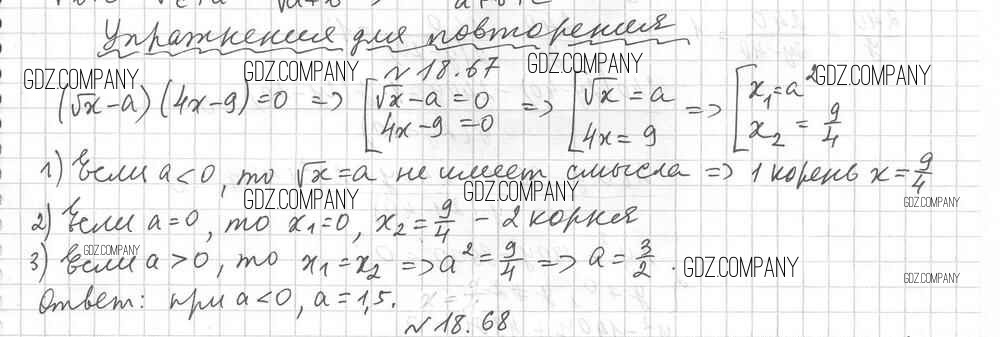 Упражнения для повторения
GDZ.COMPANY GDZ.COMPANY № 18.67 GDZ.COMPANY GDZ.COMPANY
(√x-a)(4x-9)=0 => [√x-a=0 => [√x=a => [x₁=a²
4x-9=0 4x=9 x₂=9/4
1) Если a<0, то √x=a не имеет смысла => 1 корень x=9/4
GDZ.COMPANY GDZ.COMPANY GDZ.COMPANY
2) Если a=0, то x₁=0, x₂=9/4 - 2 корня
GDZ.COMPANY
3) Если a>0, то x₁=x₂ => a²=9/4 => a=3/2. GDZ.COMPANY
GDZ.COMPANY
Ответ: при a<0, a=1,5.
№ 18.68